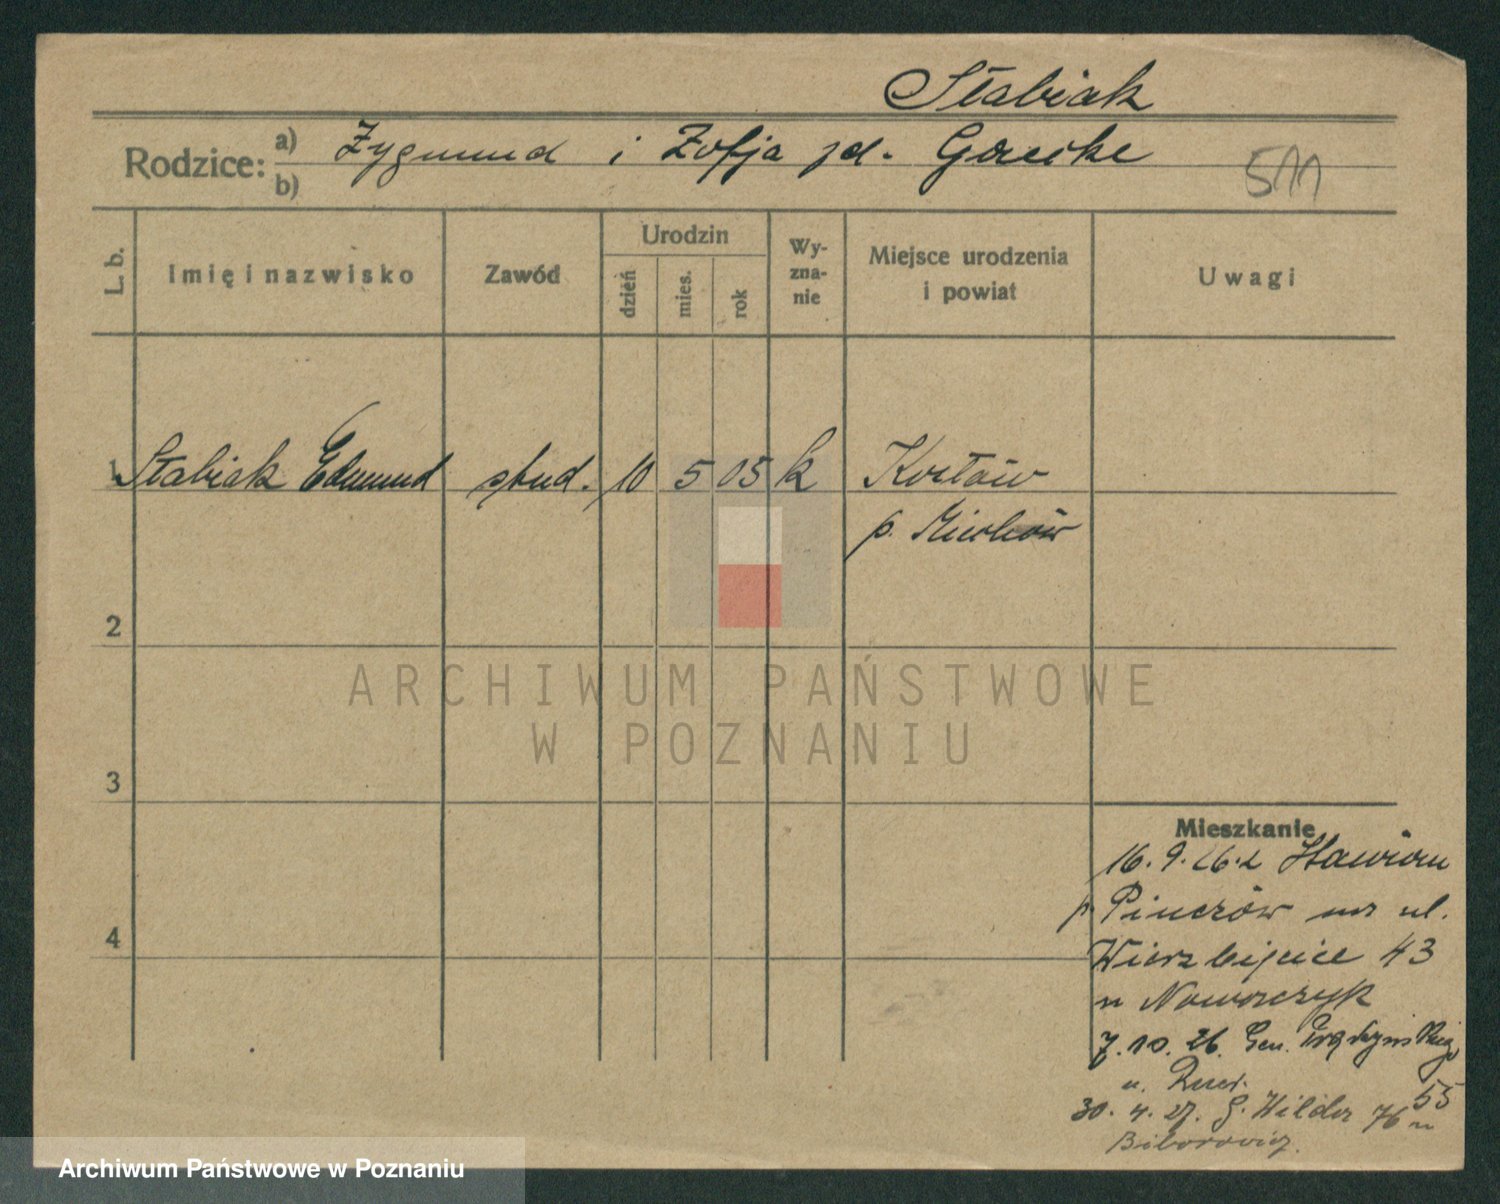 Słabiak
Rodzice: a) Zygmund i Zofja
b)
511
L. b.
Imię i nazwisko
Zawód
Urodzin
dzień
mies.
rok
Wy-
zna-
nie
Miejsce urodzenia
i powiat
Uwagi
1 Słabiak Edmund stud. 10 5 05 k Kozłów
p. Miechów
2
3
4
Mieszkanie
16.9.26.z
p. Pinczów na ul.
Wierzbięcice 43
u Nowaczyk
7.10.26. Gen. Prądzyńskiego
55
u.
30.4.27. G. Wilda 76 u
Biborowicz.
ARCHIWUM PAŃSTWOWE
W POZNANIU
Archiwum Państwowe w Poznaniu